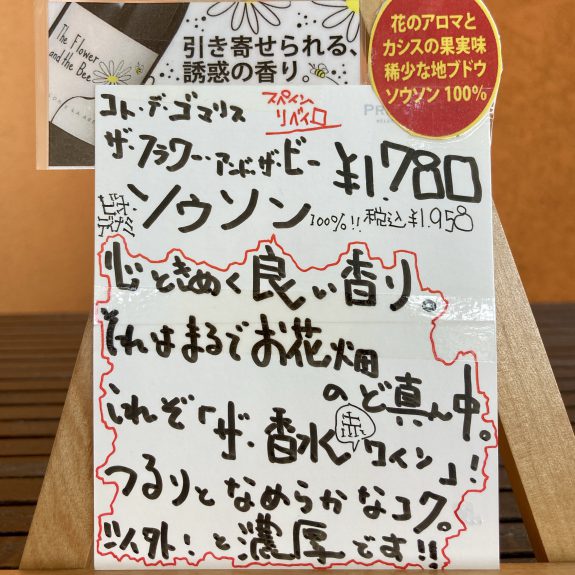 The Flower
and the Bee
引き寄せられる、
誘惑の香り。
花のアロマと
カシスの果実味
稀少な地ブドウ
ソウソン100%
コト・デ・ゴマリス
スペイン
リベイロ
ザ・フラワー・アンド・ザ・ビー
¥1.780
ソウソン
100%!! 税込¥1.958
心ときめく良い香り。
それはまるでお花畑
のど真ん中。
これぞ「ザ・香水赤ワイン」!
つるりとなめらかなコク。
以外!と濃厚です!!